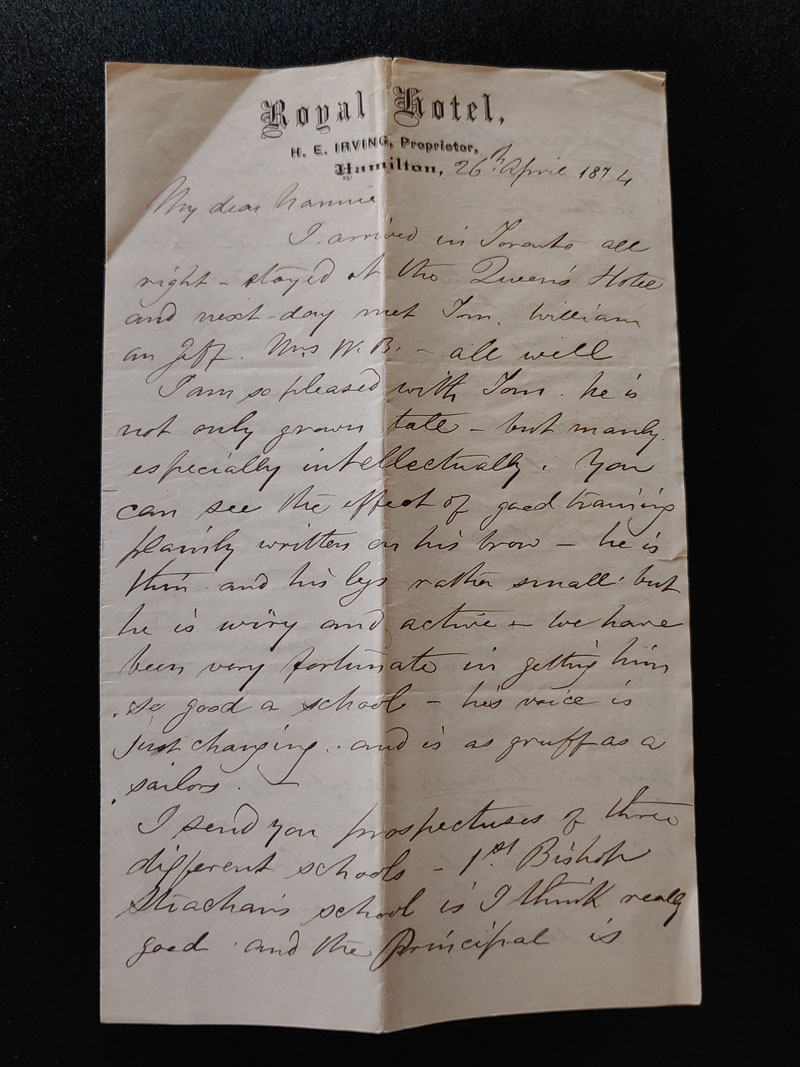 Royal Hotel,
H. E. IRVING, Proprietor,
Hamilton, 26th April 1874
My dear Nannie
I arrived in Toronto all
right - stayed at the Queen's Hotel
and next day met Tom. William
an Jeff. Mrs W. B. - all well
I am so pleased with Tom. he is
not only grown tall - but manly.
especially intellectually. You
can see the effect of good training
plainly written on his brow - he is
thin and his legs rather small but
he is wiry and active - We have
been very fortunate in getting him
so good a school - his voice is
just changing. and is as gruff as a
sailors. -
I send you prospectuses of three
different schools - 1st Bishop
Strachan's school is I think really
good and the Principal is